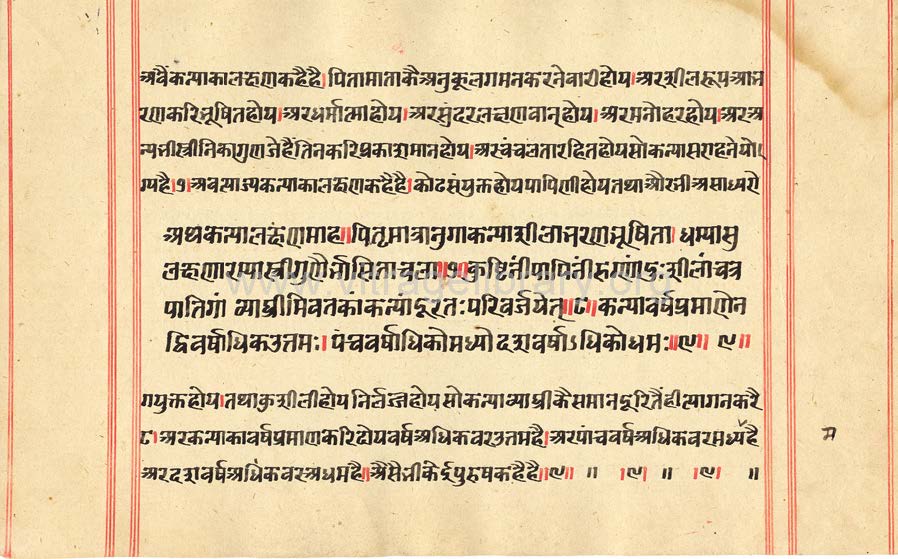 अवैंकन्याकालक्षणकहैहै। पितामाताकैअनुकूलगमनकरनेवारीहोय।अरशीलरूपआभ
रणकरिभूषितहोय।अरधर्मात्माहोय।अरसुंदरलक्षणवान्होय।अरमनोहरहोय।अरअ
न्यभीस्त्रीनिकगुणजेहैंतिनकरिप्रकाशमानहोय।अरचंचलतारहितहोयसोकन्यासराहनेयो
ग्यहै।७।अबत्याज्यकन्याकालक्षणकहैहै।कोढसंयुक्तहोयपापिणीहोयतथाऔरभीअसाध्यरो
अथकन्यालक्षणमाह॥पितृमात्रानुगाकन्याशीलाभरणभूषिता।धर्म्यासु
लक्षणारम्यास्त्रीगुणैर्भासिताचला॥७॥कुष्टिनींपापिनींरुग्णांदुःशीलांचत्र
पातिगां व्याघ्रीमिवतकांकन्यांदूरतःपरिवर्ज्जयेत्॥८॥कन्यावर्षप्रमाणेन
द्विवर्षाधिकउत्तमः।पंचवर्षाधिकोमध्योदशवर्षाऽधिकोधमः॥९॥ ९॥
गयुक्तहोय।तथाकुशीलीहोयनिर्लज्जहोयसोकन्याव्याघ्रीकैसमानदूरितैंहीत्यागनकरै
८।अरकन्याकावर्षप्रमाणकरिदोयवर्षअधिकवरउत्तमहै।अरपांचवर्षअधिकवरमध्यहै
म
अरदशवर्षअधिकवरअधमहै॥ऐसैभीकेईपुरुषकहैहै॥९॥ ॥ ।९। ॥ ।९। ॥
www.vitragelibrary.org